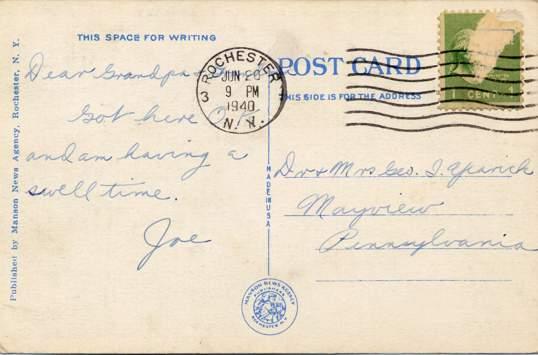 THIS SPACE FOR WRITING
Dear Grandpa +
Got here O.K.
and am having a
swell time.
Joe
Published by Manson News Agency, Rochester, N. Y.
ROCHESTER
JUN 20
9 PM
1940
N.Y.
3
POST CARD
THIS SIDE IS FOR THE ADDRESS
1 CENT 1
MADE IN USA
Dr & Mrs Geo. I. Yearick
Mayview
Pennsylvania
MANSON NEWS AGENCY
PUBLISHERS
ROCHESTER N.Y.